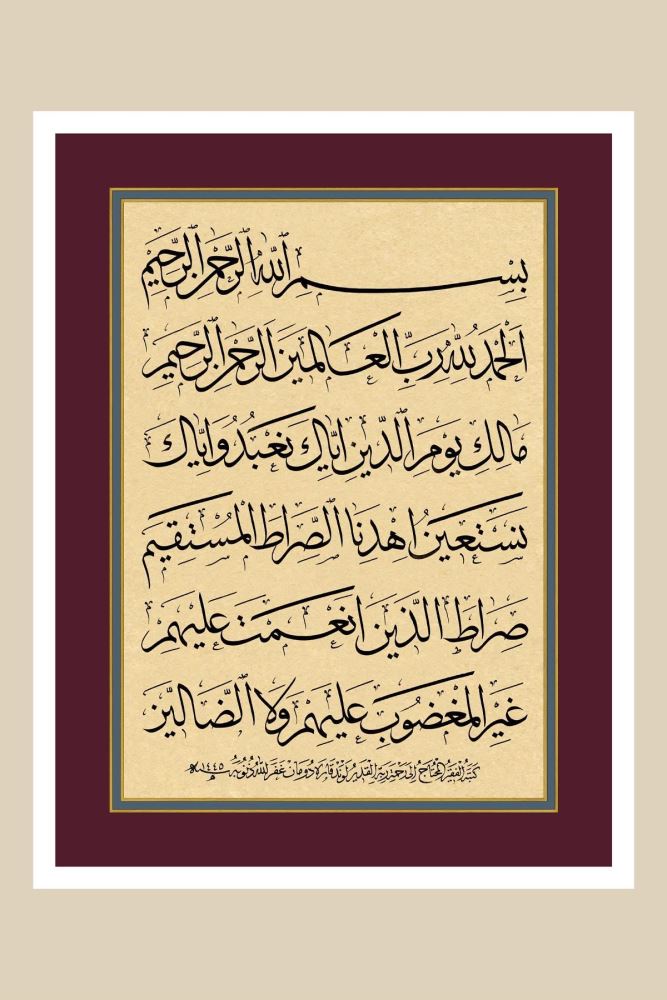 بسم الله الرحمن الرحيم
الحمد لله رب العالمين الرحمن الرحيم
مالك يوم الدين اياك نعبد واياك
نستعين اهدنا الصراط المستقيم
صراط الذين انعمت عليهم
غير المغضوب عليهم ولا الضالين
كتبه الفقير المحتاج الى رحمة ربه القدير لوند قاره دومان غفر الله ذنوبه سنة ١٤٤٥هـ